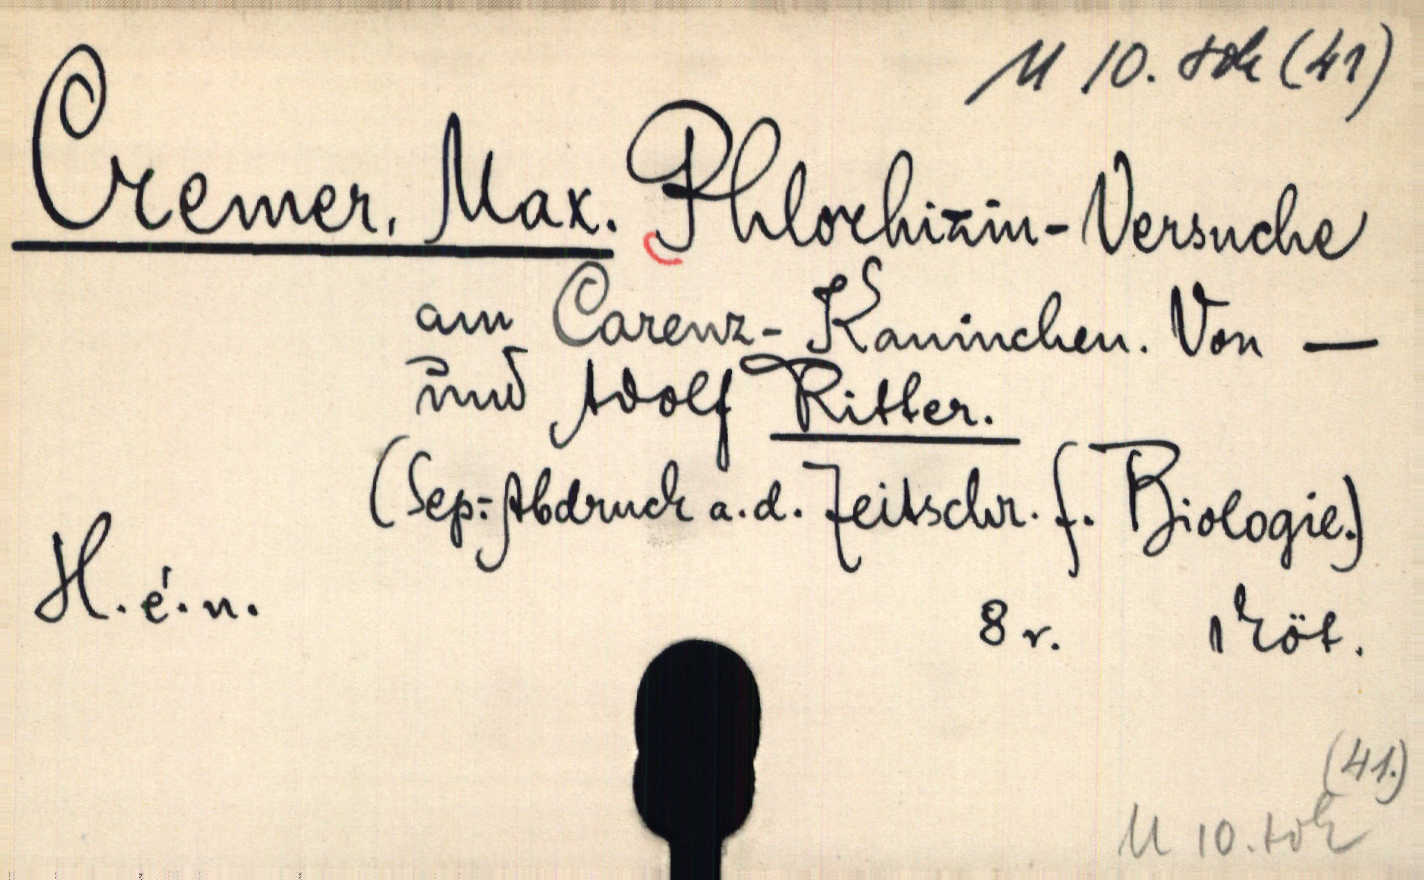 M 10. tok (41)
Cremer, Max. Phlorhizin-Versuche
am Carenz-Kaninchen. Von —
und Adolf Ritter.
(Sep.-Abdruck a. d. Zeitschr. f. Biologie.)
H. é. n.
8 r. 1 köt.
(41.)
M 10. tok